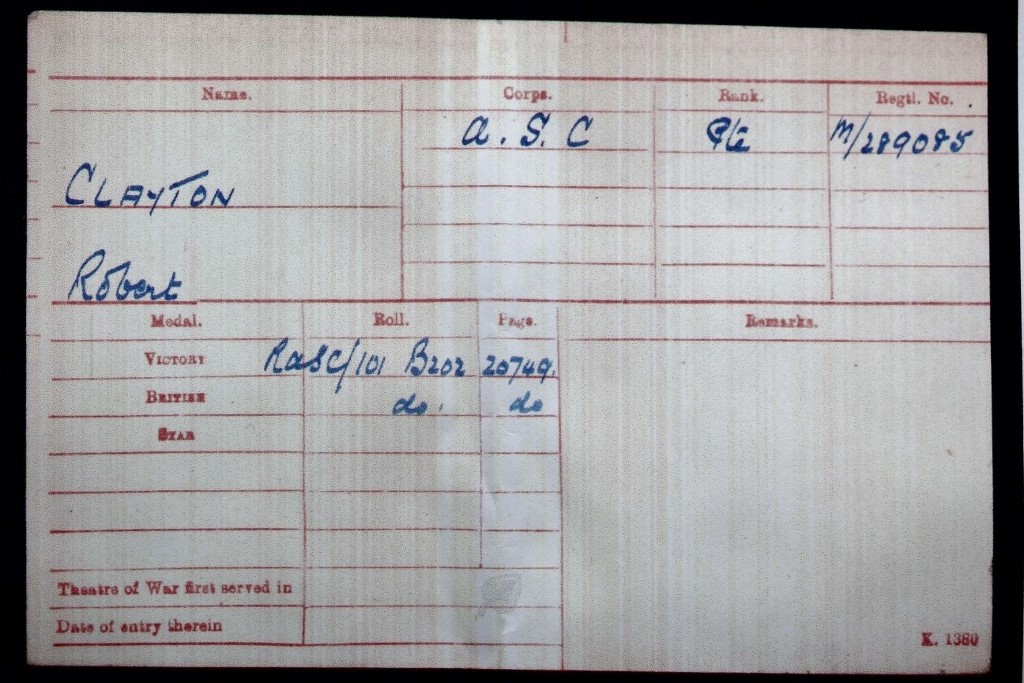 Name. Corps. Rank. Regtl. No.
A. S. C Pte M/289085
CLAYTON
Robert
Medal. Roll. Page. Remarks.
VICTORY RASC/101 B202 20749.
BRITISH do. do
STAR
Theatre of War first served in
Date of entry therein
K. 1380